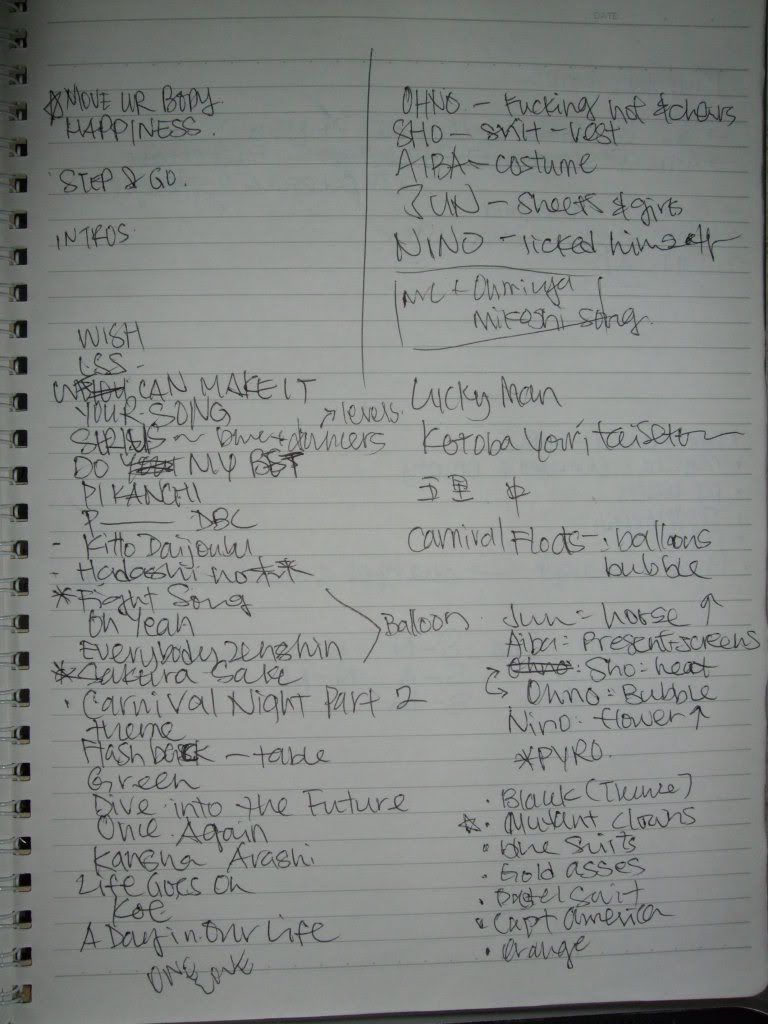 DATE
☆MOVE UR BODY.
HAPPINESS.
STEP & GO.
INTROS
WISH
LSS -
WE CAN MAKE IT
YOUR SONG
~ dancers
→ levels.
DO MY BEST
PIKANCHI
P——— DBC
- Kitto Daijoubu
- Hadashi no 未来
* Fight Song
Oh Yeah
Everybody zenshin
Balloon.
* Sakura Sake
· Carnival Night Part 2
Theme
Flashback - table
Green
Dive into the Future
Once Again
Kansha Arashi
Life Goes On
Koe
A Day in Our Life
ONE LOVE
OHNO - Fucking hot & chairs
SHO - suit - vest
AIBA - costume
JUN - sheets & girls
NINO - licked himself
MC + Ohmiya
Mikoshi Song.
Lucky Man
Kotoba yori taisetsu
五里 中
Carnival Floats - : balloons
bubble
Jun = horse ↑
Aiba: Present-screens
Ohno: Sho: heart
Ohno: Bubble
Nino: flower ↑
*PYRO.
· Black ( )
☆· Mutant Clowns
· Blue Shirts
· Gold asses
· Pastel Suit
· Capt America
· Orange